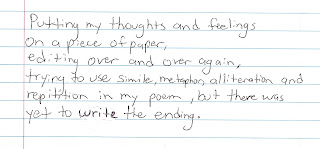 Putting my thoughts and feelings
on a piece of paper,
editing over and over again,
trying to use simile, metaphor, alliteration and
repitition in my poem, but there was
yet to write the ending.